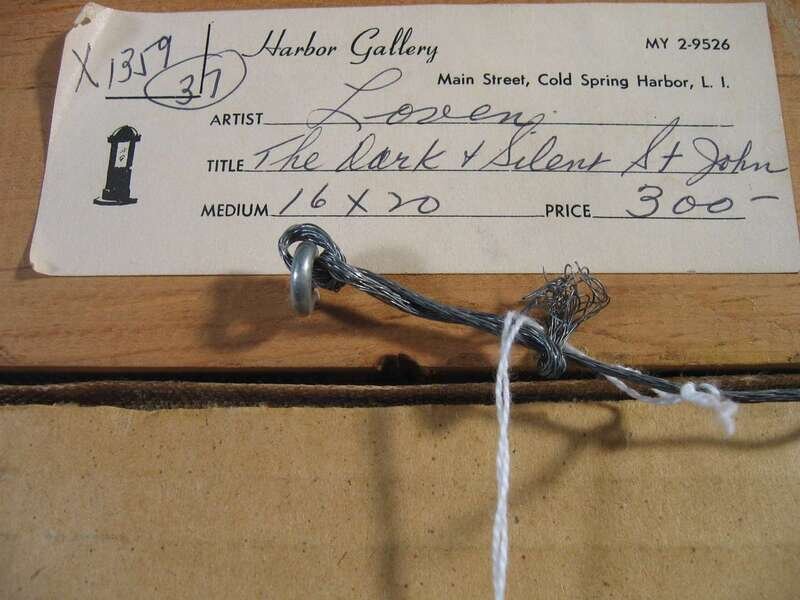 X 1359
37
Harbor Gallery
MY 2-9526
Main Street, Cold Spring Harbor, L. I.
ARTIST Loven
TITLE The Dark & Silent St John
MEDIUM 16 X 20 PRICE 300-